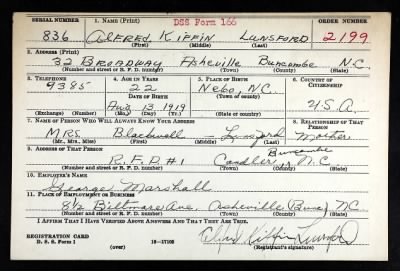 SERIAL NUMBER 1. NAME (Print) DSS Form 166 ORDER NUMBER
836 ALFRED KIFFIN LUNSFORD 2199
(First) (Middle) (Last)
2. ADDRESS (Print)
32 BROADWAY Asheville Buncombe N.C.
(Number and street or R. F. D. number) (Town) (County) (State)
3. TELEPHONE 4. AGE IN YEARS 5. PLACE OF BIRTH 6. COUNTRY OF CITIZENSHIP
9385 22 Nebo, N.C.
DATE OF BIRTH (Town or county)
Aug 13, 1919 U.S.A.
(Exchange) (Number) (Mo.) (Day) (Yr.) (State or country)
7. NAME OF PERSON WHO WILL ALWAYS KNOW YOUR ADDRESS 8. RELATIONSHIP OF THAT PERSON
MRS. Blackwell Lunsford Mother
(Mr., Mrs., Miss) (First) (Middle) (Last)
9. ADDRESS OF THAT PERSON Buncombe
R.F.D. #1 Candler, N.C.
(Number and street or R. F. D. number) (Town) (County) (State)
10. EMPLOYER'S NAME
George Marshall
11. PLACE OF EMPLOYMENT OR BUSINESS
8½ Biltmore Ave, Asheville (Bunc) NC
(Number and street or R. F. D. number) (Town) (County) (State)
I AFFIRM THAT I HAVE VERIFIED ABOVE ANSWERS AND THAT THEY ARE TRUE.
REGISTRATION CARD
D. S. S. Form 1 (over) 16—17105 Alfred Kiffin Lunsford
(Registrant's signature)